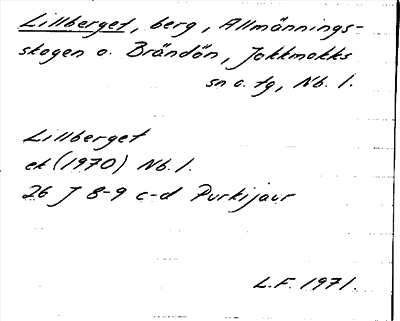 Lillberget, berg, Allmännings-
skogen o. Brändön, Jokkmokks
sn o. tg, Nb. l.
Lillberget
ek (1970) Nb. l.
26 J 8-9 c-d Purkijaur
L.F. 1971.